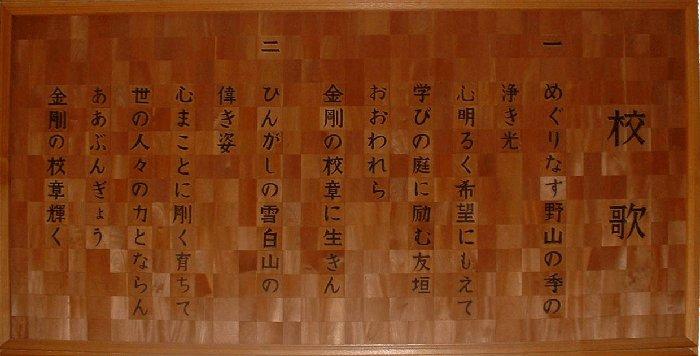 校歌
一 めぐりなす野山の季の
浄き光
心明るく希望にもえて
学びの庭に励む友垣
おおわれら
金剛の校章に生きん
二 ひんがしの雪白山の
偉き姿
心まことに剛く育ちて
世の人々の力とならん
ああぶんぎょう
金剛の校章輝く